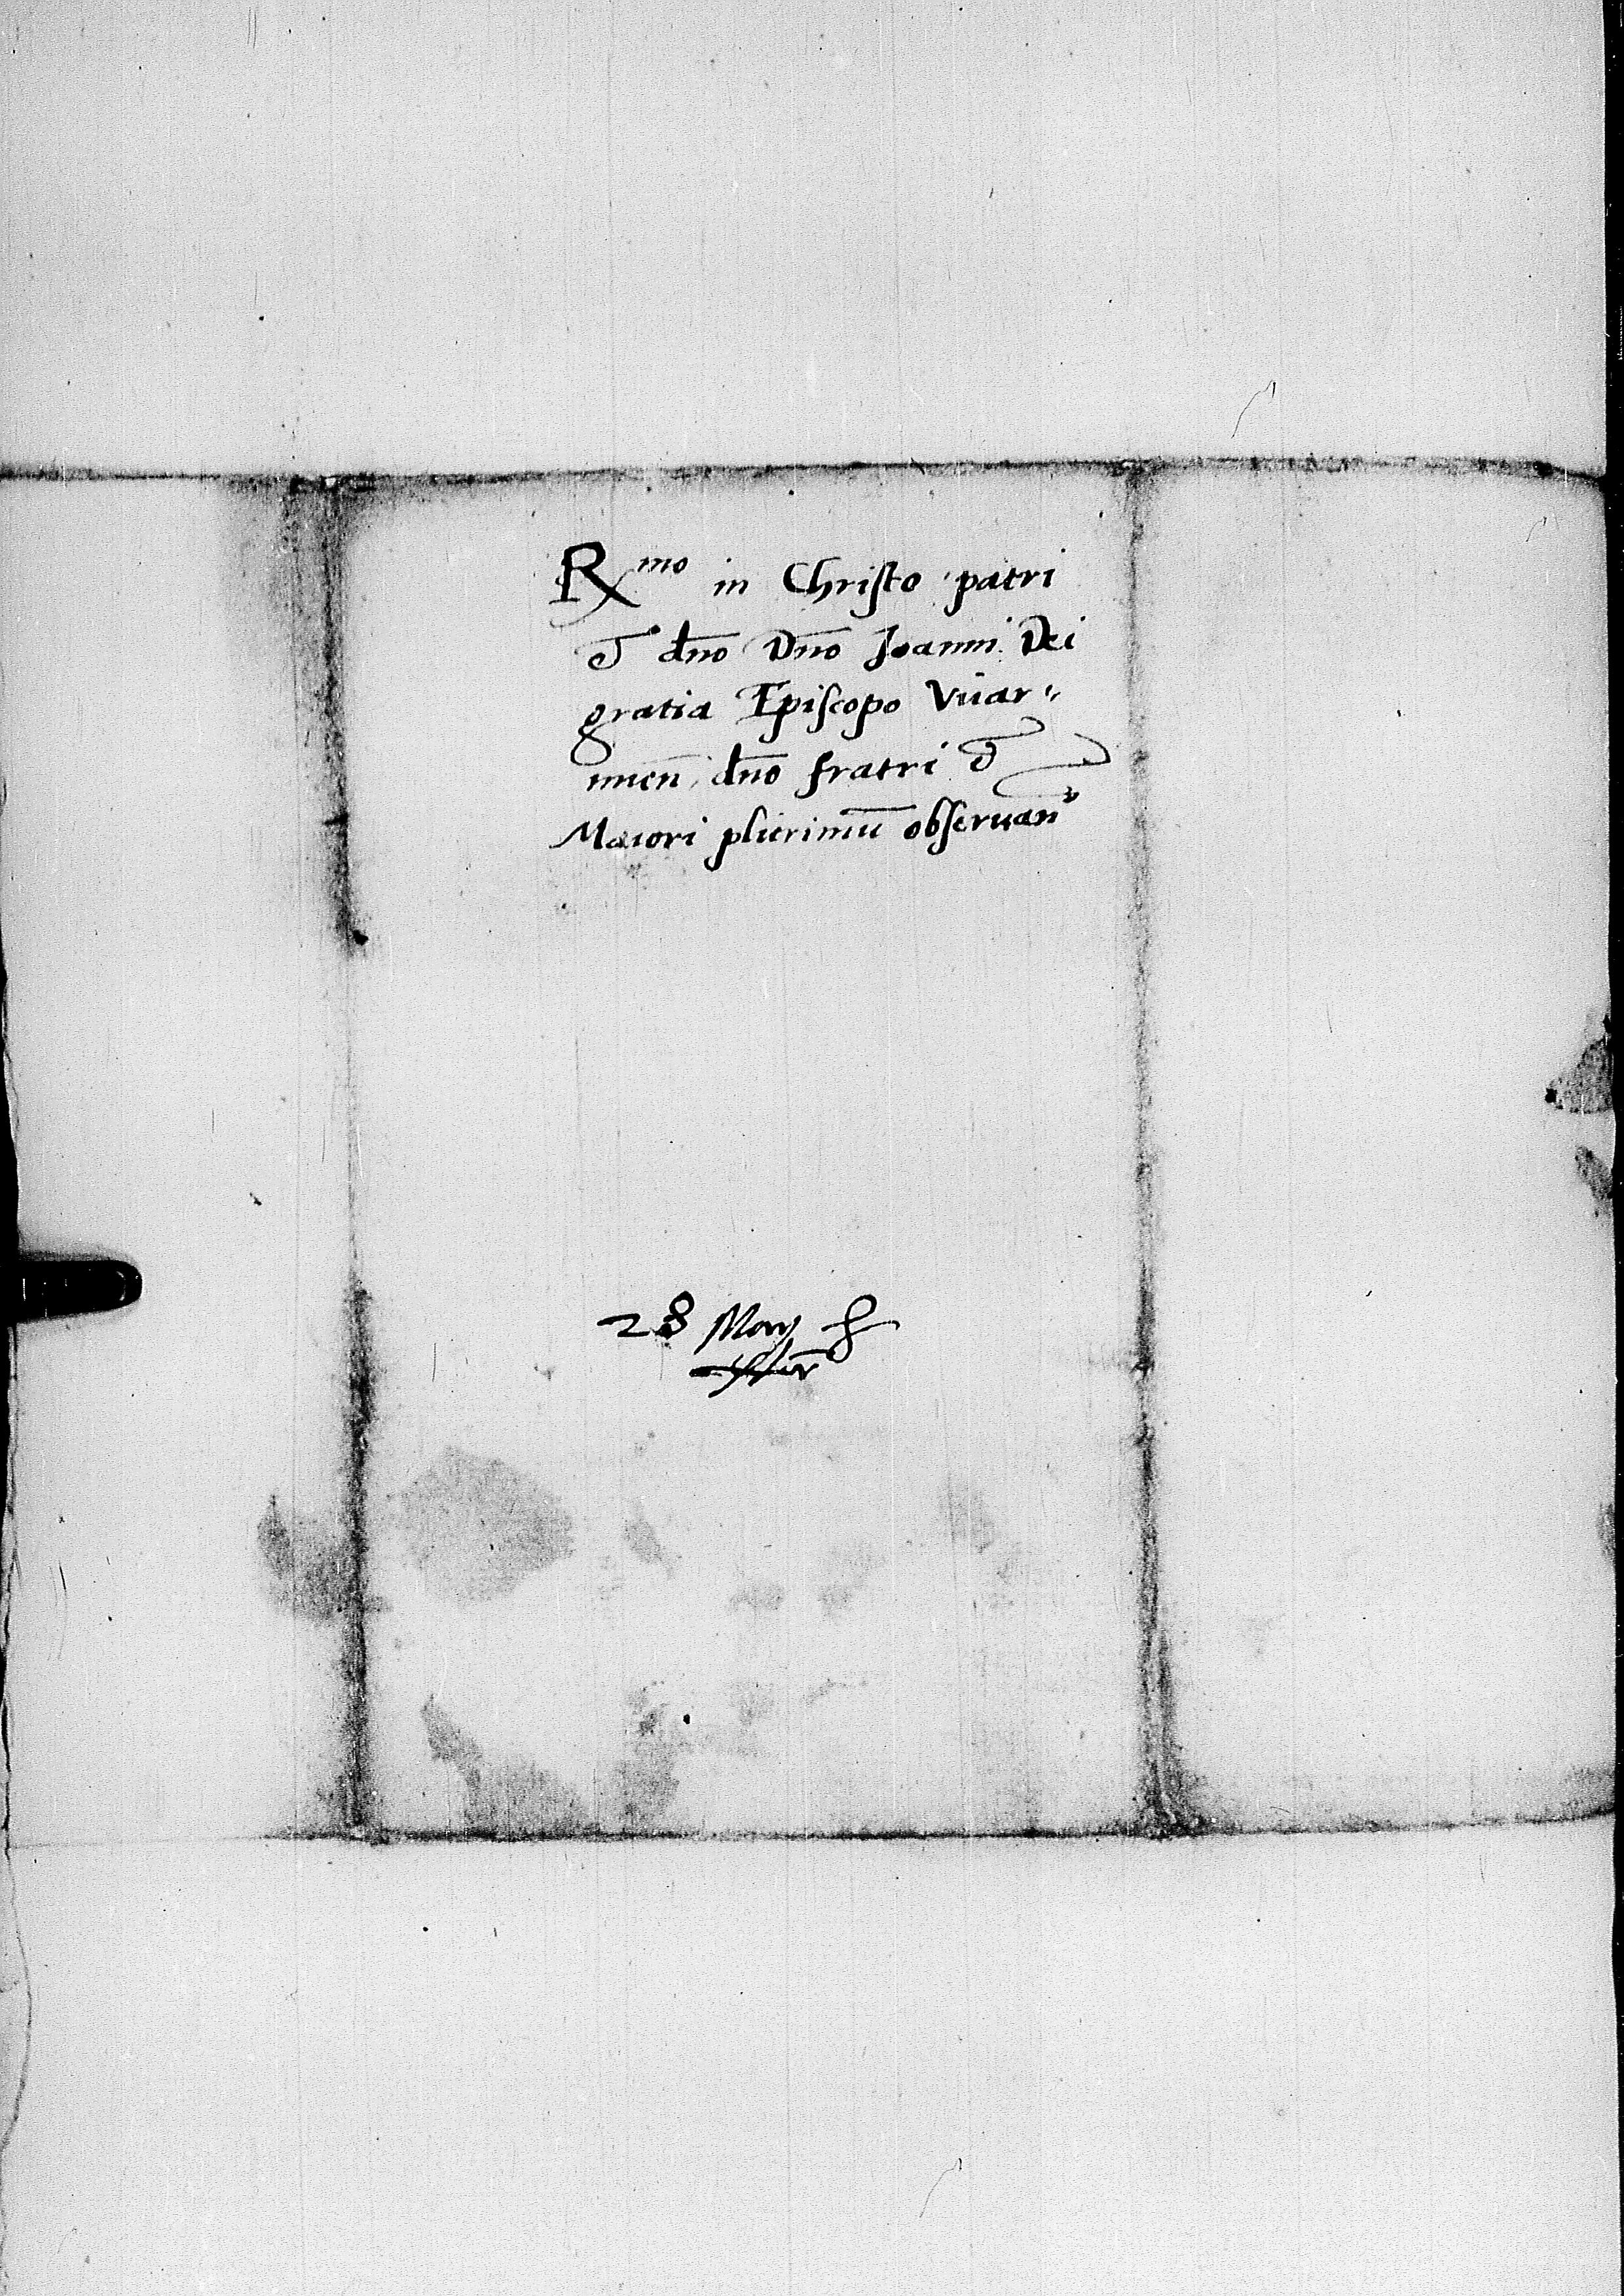 Rmo in Christo patri
et dno Dno Joanni Dei
gratia Episcopo Vuar-
mien dno fratri et
Maiori plurimu obseruan
28 Maij